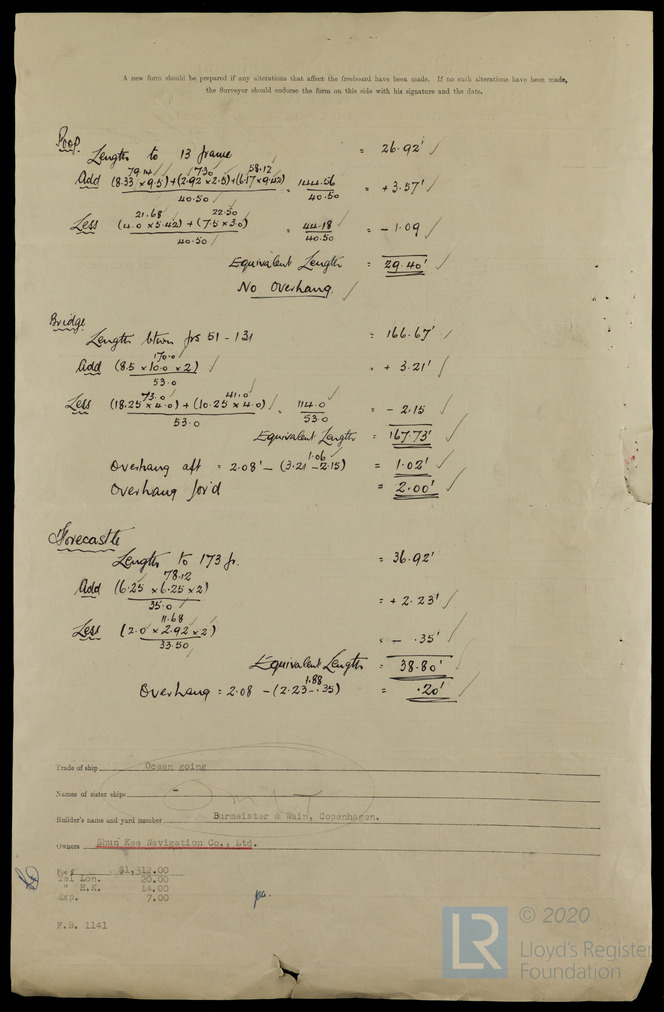 A new form should be prepared if any alterations that affect the freeboard have been made. If no such alterations have been made,
the Surveyor should endorse the form on this side with his signature and the date.
Poop.
Length to 13 frame = 26.92' ✓
79.14 ✓ 7.30 ✓ 58.12
Add (8.33 × 9.5) + (2.92 × 2.5) + (6.17 × 9.42) = 144.56 = + 3.57' ✓
40.50 ✓ 40.50
21.68 ✓ 22.50 ✓
Less (4.0 × 5.42) + (7.5 × 3.0) = 44.18 = - 1.09 ✓
40.50 ✓ 40.50
Equivalent Length = 29.40' ✓
No Overhang. ✓
Bridge.
Length btwn frs 51 - 131 = 166.67' ✓
170.0 ✓
Add (8.5 × 10.0 × 2) ✓ = + 3.21' ✓
53.0
73.0 ✓ 41.0 ✓
Less (18.25 × 4.0) + (10.25 × 4.0) ✓ = 114.0 = - 2.15 ✓
53.0 53.0
Equivalent Length = 167.73' ✓
1.06 ✓
Overhang aft = 2.08' - (3.21 - 2.15) = 1.02' ✓
Overhang for'd = 2.00' ✓
Forecastle
Length to 173 fr. = 36.92'
78.12
Add (6.25 × 6.25 × 2) = + 2.23' ✓
35.0 ✓
11.68
Less (2.0 × 2.92 × 2) = - .35' ✓
33.50
Equivalent Length = 38.80' ✓
1.88
Overhang = 2.08 - (2.23 - .35) = .20' ✓
Trade of ship Ocean going
Names of sister ships -
Builder's name and yard number Burmeister & Wain, Copenhagen.
Owners Shun Kee Navigation Co., Ltd.
Fee $ $1,312.00
Tel Lon. 20.00
" H.K. 14.00
Exp. 7.00
F.B. 1141
LR © 2020
Lloyd's Register
Foundation